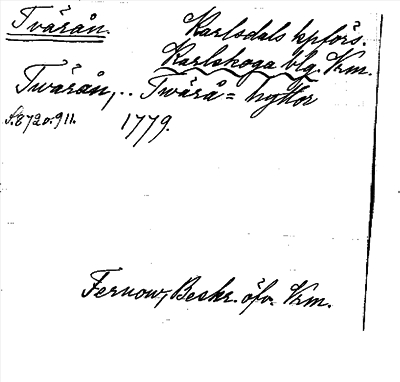 Tvärån.
Karlsdals kpförs.
Karlskoga blg. Vrm.
Twärån, .. Twärå = hyttor
s. 872 o. 911. 1779.
Fernow, Beskr. öfv. Vrm.